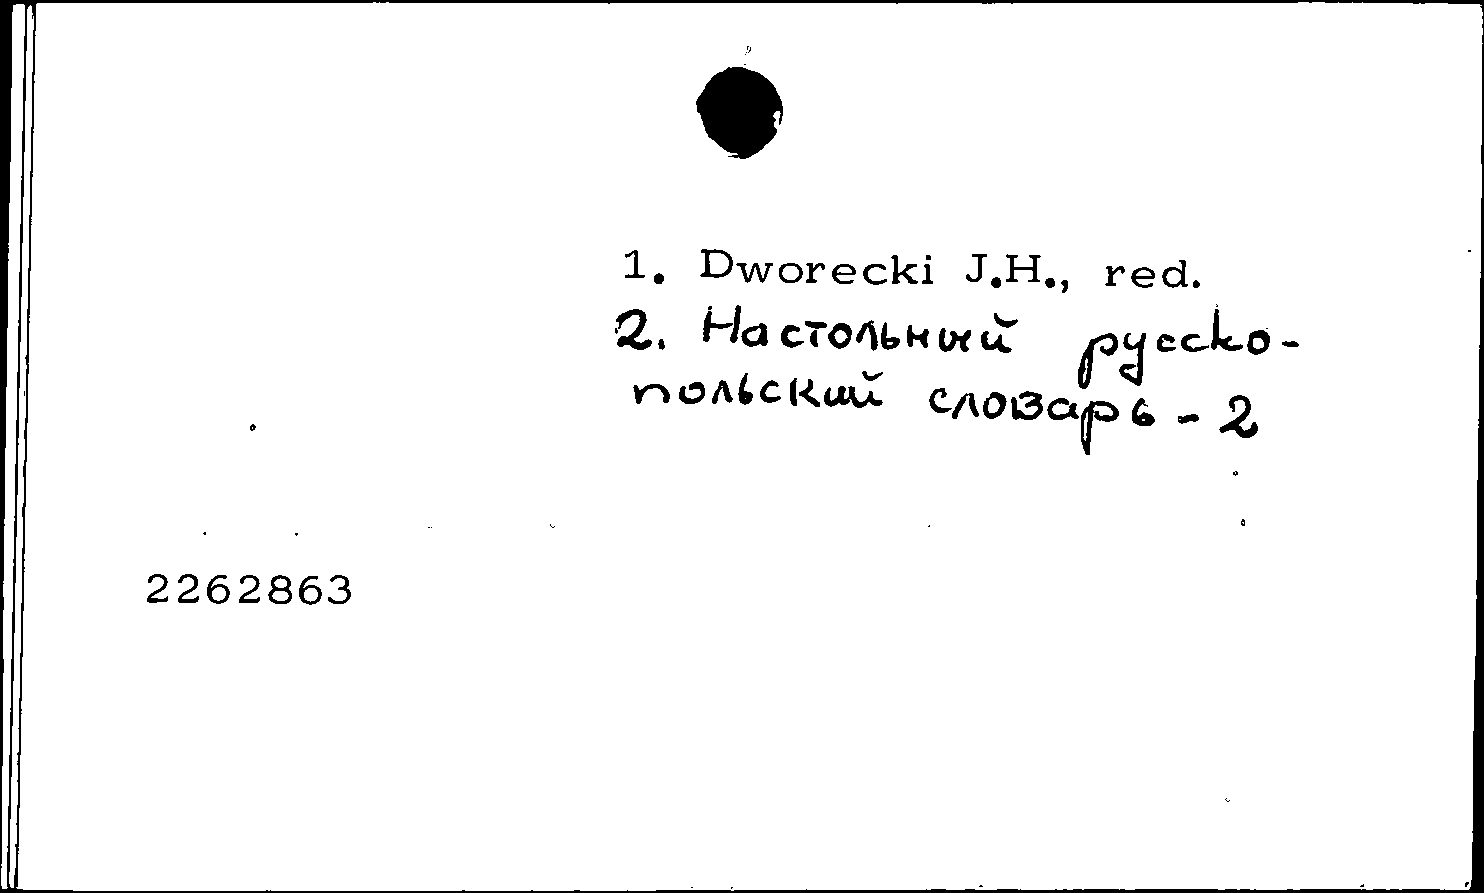 1. Dworecki J.H., red.
2. Настольный русско-
польский словарь - 2
2262863